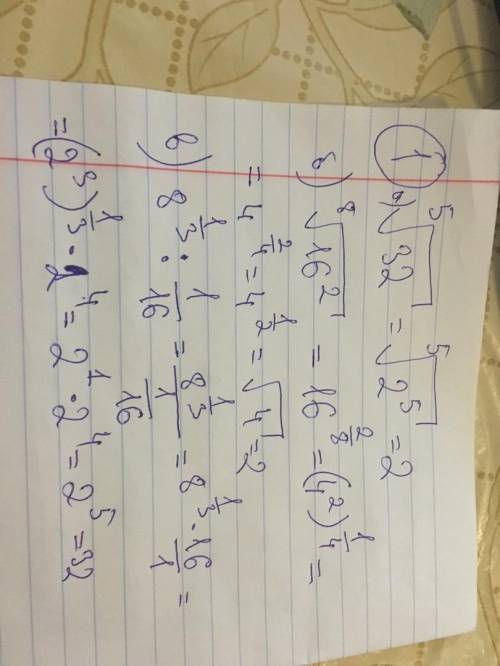 ① а) ⁵√32 = ⁵√2⁵ = 2
б) ⁸√16² = 16^(2/8) = (4²)^(1/4) =
= 4^(2/4) = 4^(1/2) = √4 = 2
в) 8^(1/3) : 1/16 = 8^(1/3)/(1/16) = 8^(1/3) · 16/1 =
= (2³)^(1/3) · 2⁴ = 2¹ · 2⁴ = 2⁵ = 32